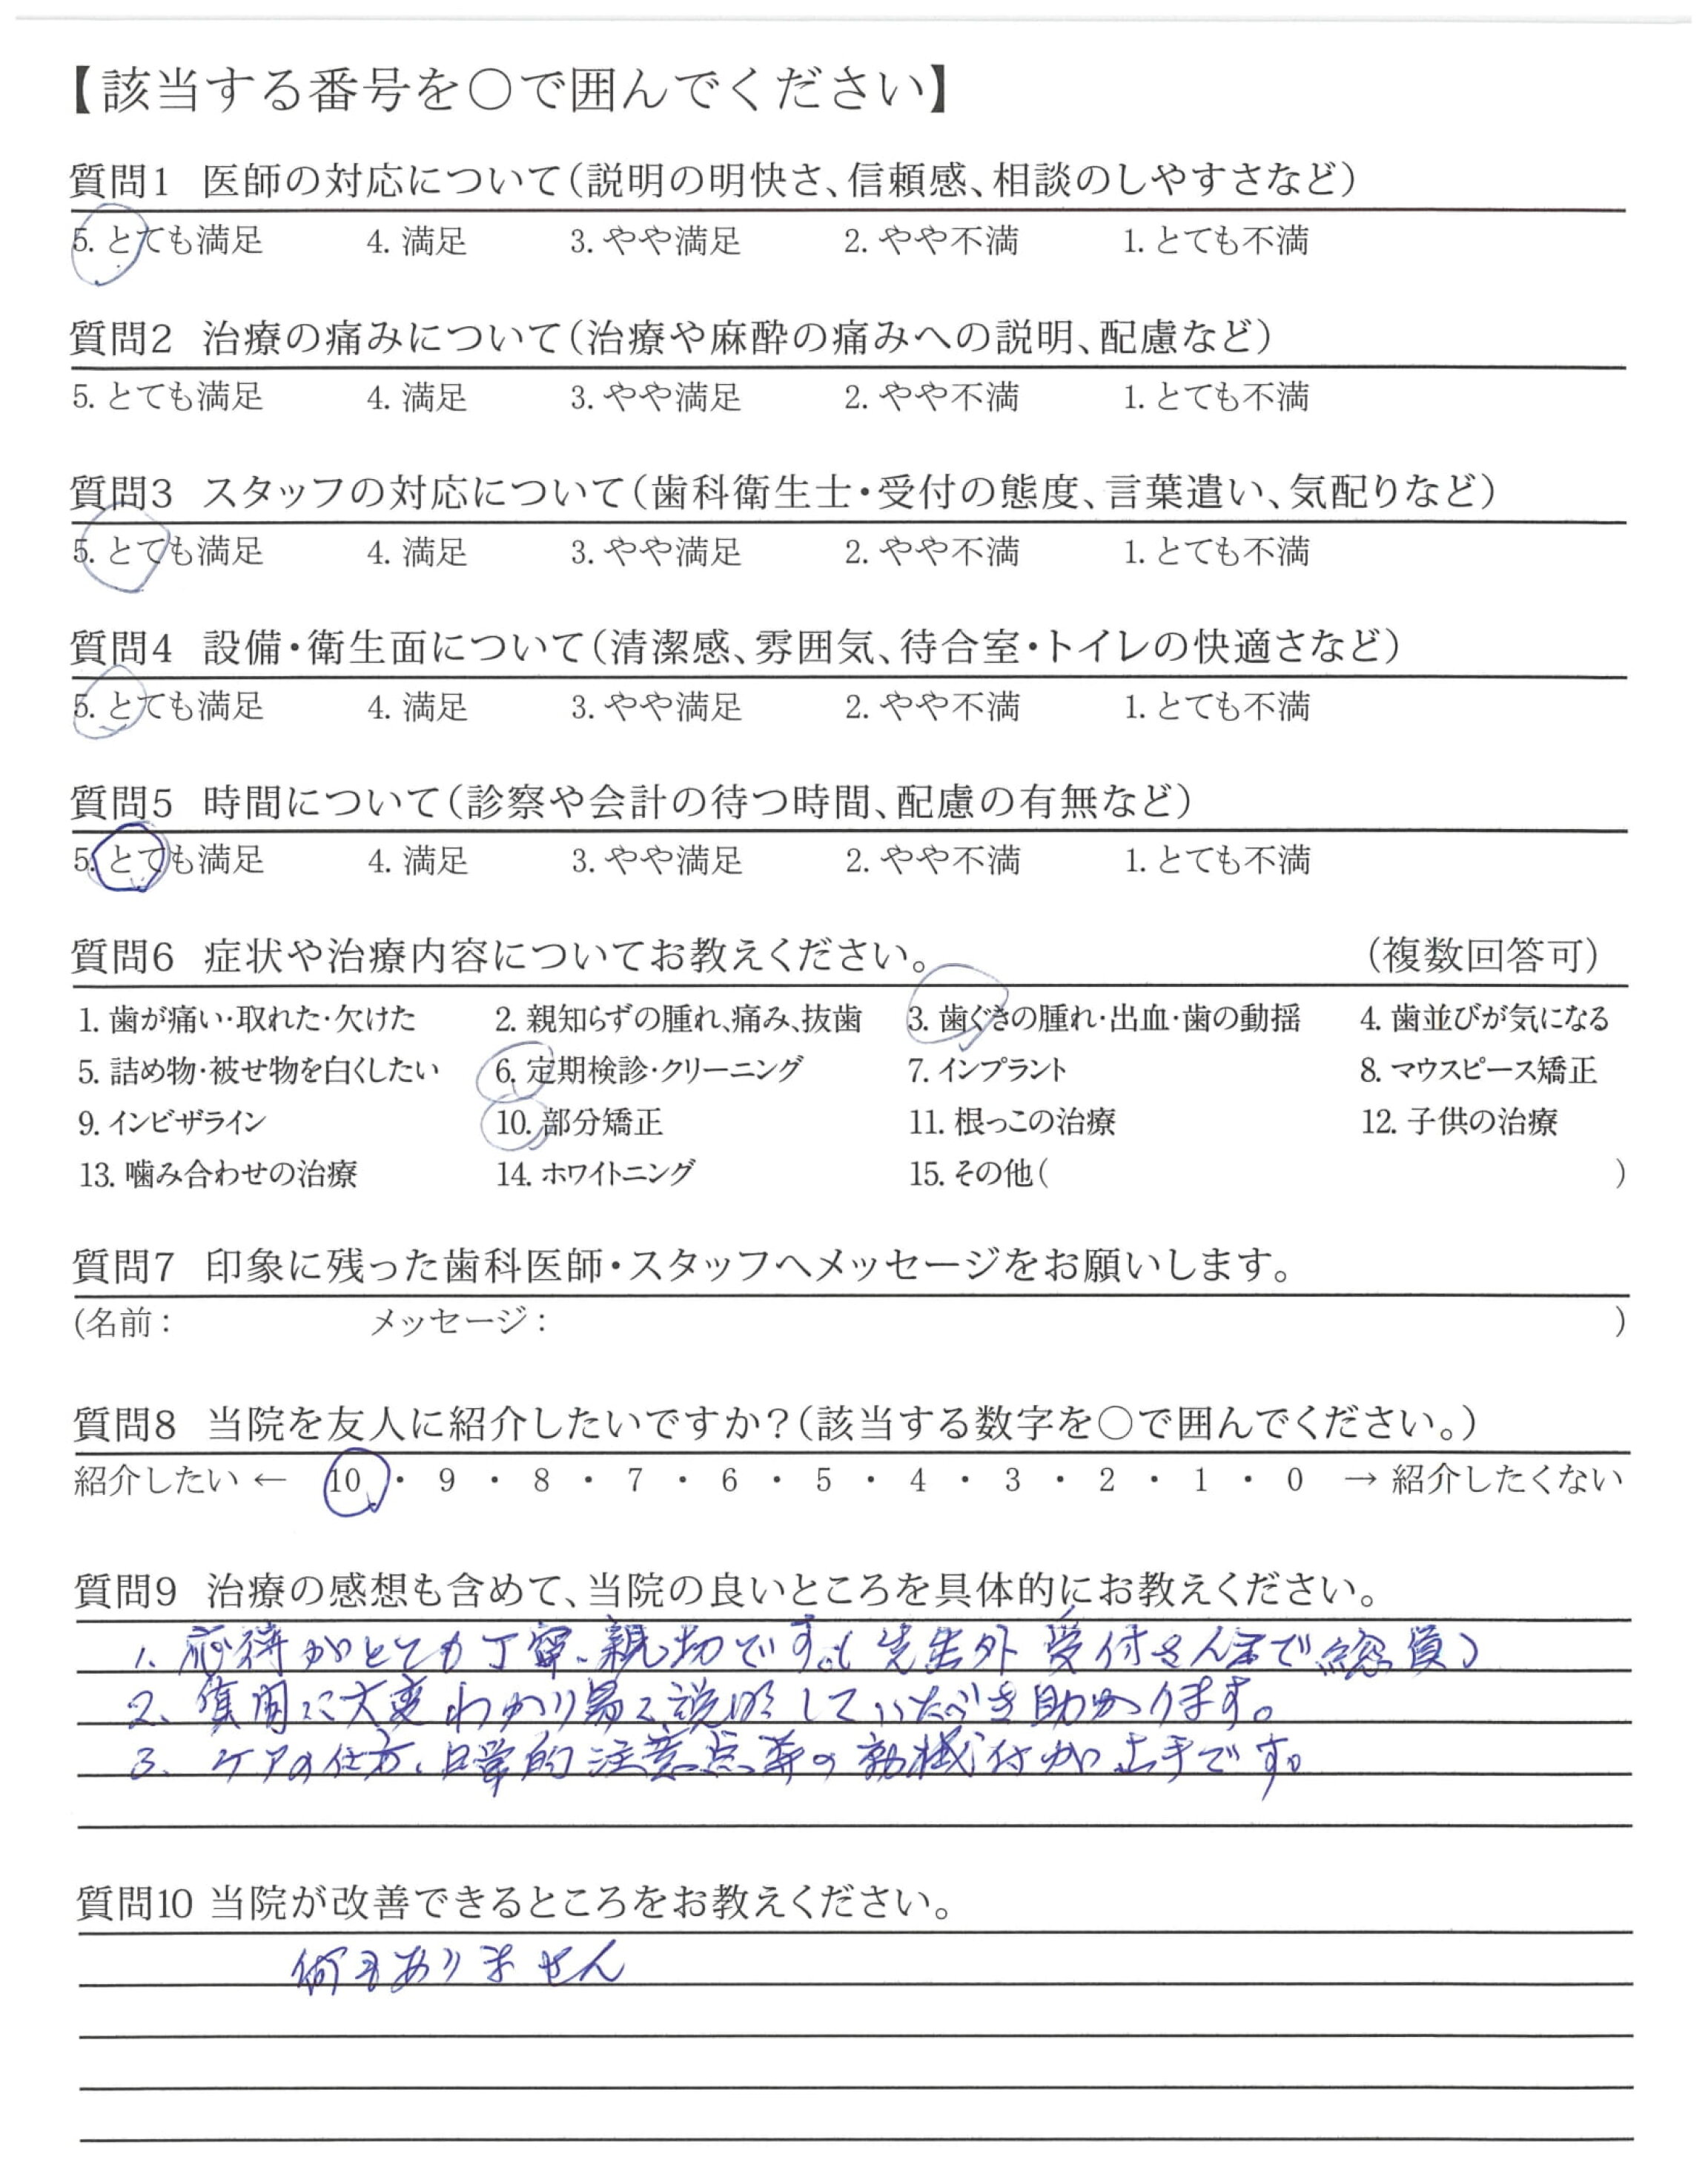 【該当する番号を○で囲んでください】
質問1 医師の対応について（説明の明快さ、信頼感、相談のしやすさなど）
5. とても満足 4. 満足 3. やや満足 2. やや不満 1. とても不満
質問2 治療の痛みについて（治療や麻酔の痛みへの説明、配慮など）
5. とても満足 4. 満足 3. やや満足 2. やや不満 1. とても不満
質問3 スタッフの対応について（歯科衛生士・受付の態度、言葉遣い、気配りなど）
5. とても満足 4. 満足 3. やや満足 2. やや不満 1. とても不満
質問4 設備・衛生面について（清潔感、雰囲気、待合室・トイレの快適さなど）
5. とても満足 4. 満足 3. やや満足 2. やや不満 1. とても不満
質問5 時間について（診察や会計の待つ時間、配慮の有無など）
5. とても満足 4. 満足 3. やや満足 2. やや不満 1. とても不満
質問6 症状や治療内容についてお教えください。 （複数回答可）
1. 歯が痛い・取れた・欠けた 2. 親知らずの腫れ、痛み、抜歯 3. 歯ぐきの腫れ・出血・歯の動揺 4. 歯並びが気になる
5. 詰め物・被せ物を白くしたい 6. 定期検診・クリーニング 7. インプラント 8. マウスピース矯正
9. インビザライン 10. 部分矯正 11. 根っこの治療 12. 子供の治療
13. 噛み合わせの治療 14. ホワイトニング 15. その他( )
質問7 印象に残った歯科医師・スタッフへメッセージをお願いします。
(名前： メッセージ： )
質問8 当院を友人に紹介したいですか？（該当する数字を○で囲んでください。）
紹介したい ← 10 ・ 9 ・ 8 ・ 7 ・ 6 ・ 5 ・ 4 ・ 3 ・ 2 ・ 1 ・ 0 → 紹介したくない
質問9 治療の感想も含めて、当院の良いところを具体的にお教えください。
1. 応待がとても丁寧、親切です。(先生外 受付さんまで総員)
2、質問に大変わかり易く説明していただき助かります。
3、ケアの仕方、日常的注意点等の動機付が上手です。
質問10 当院が改善できるところをお教えください。
何もありません